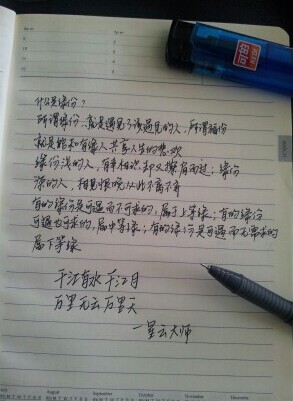 什么是缘份？
所谓缘份，就是遇见了该遇见的人，所谓福份
就是能和有缘人共享人生的悲欢
缘份浅的人，有幸相识却又擦肩而过；缘份
深的人，相见恨晚从此不离不弃
有的缘份是可遇而不可求的，属于上等缘；有的缘份
可遇也可求的，属中等缘；有的缘份是可遇而无需求的
属下等缘
千江有水千江月
万里无云万里天
—星云大师
August
September
October
November
December